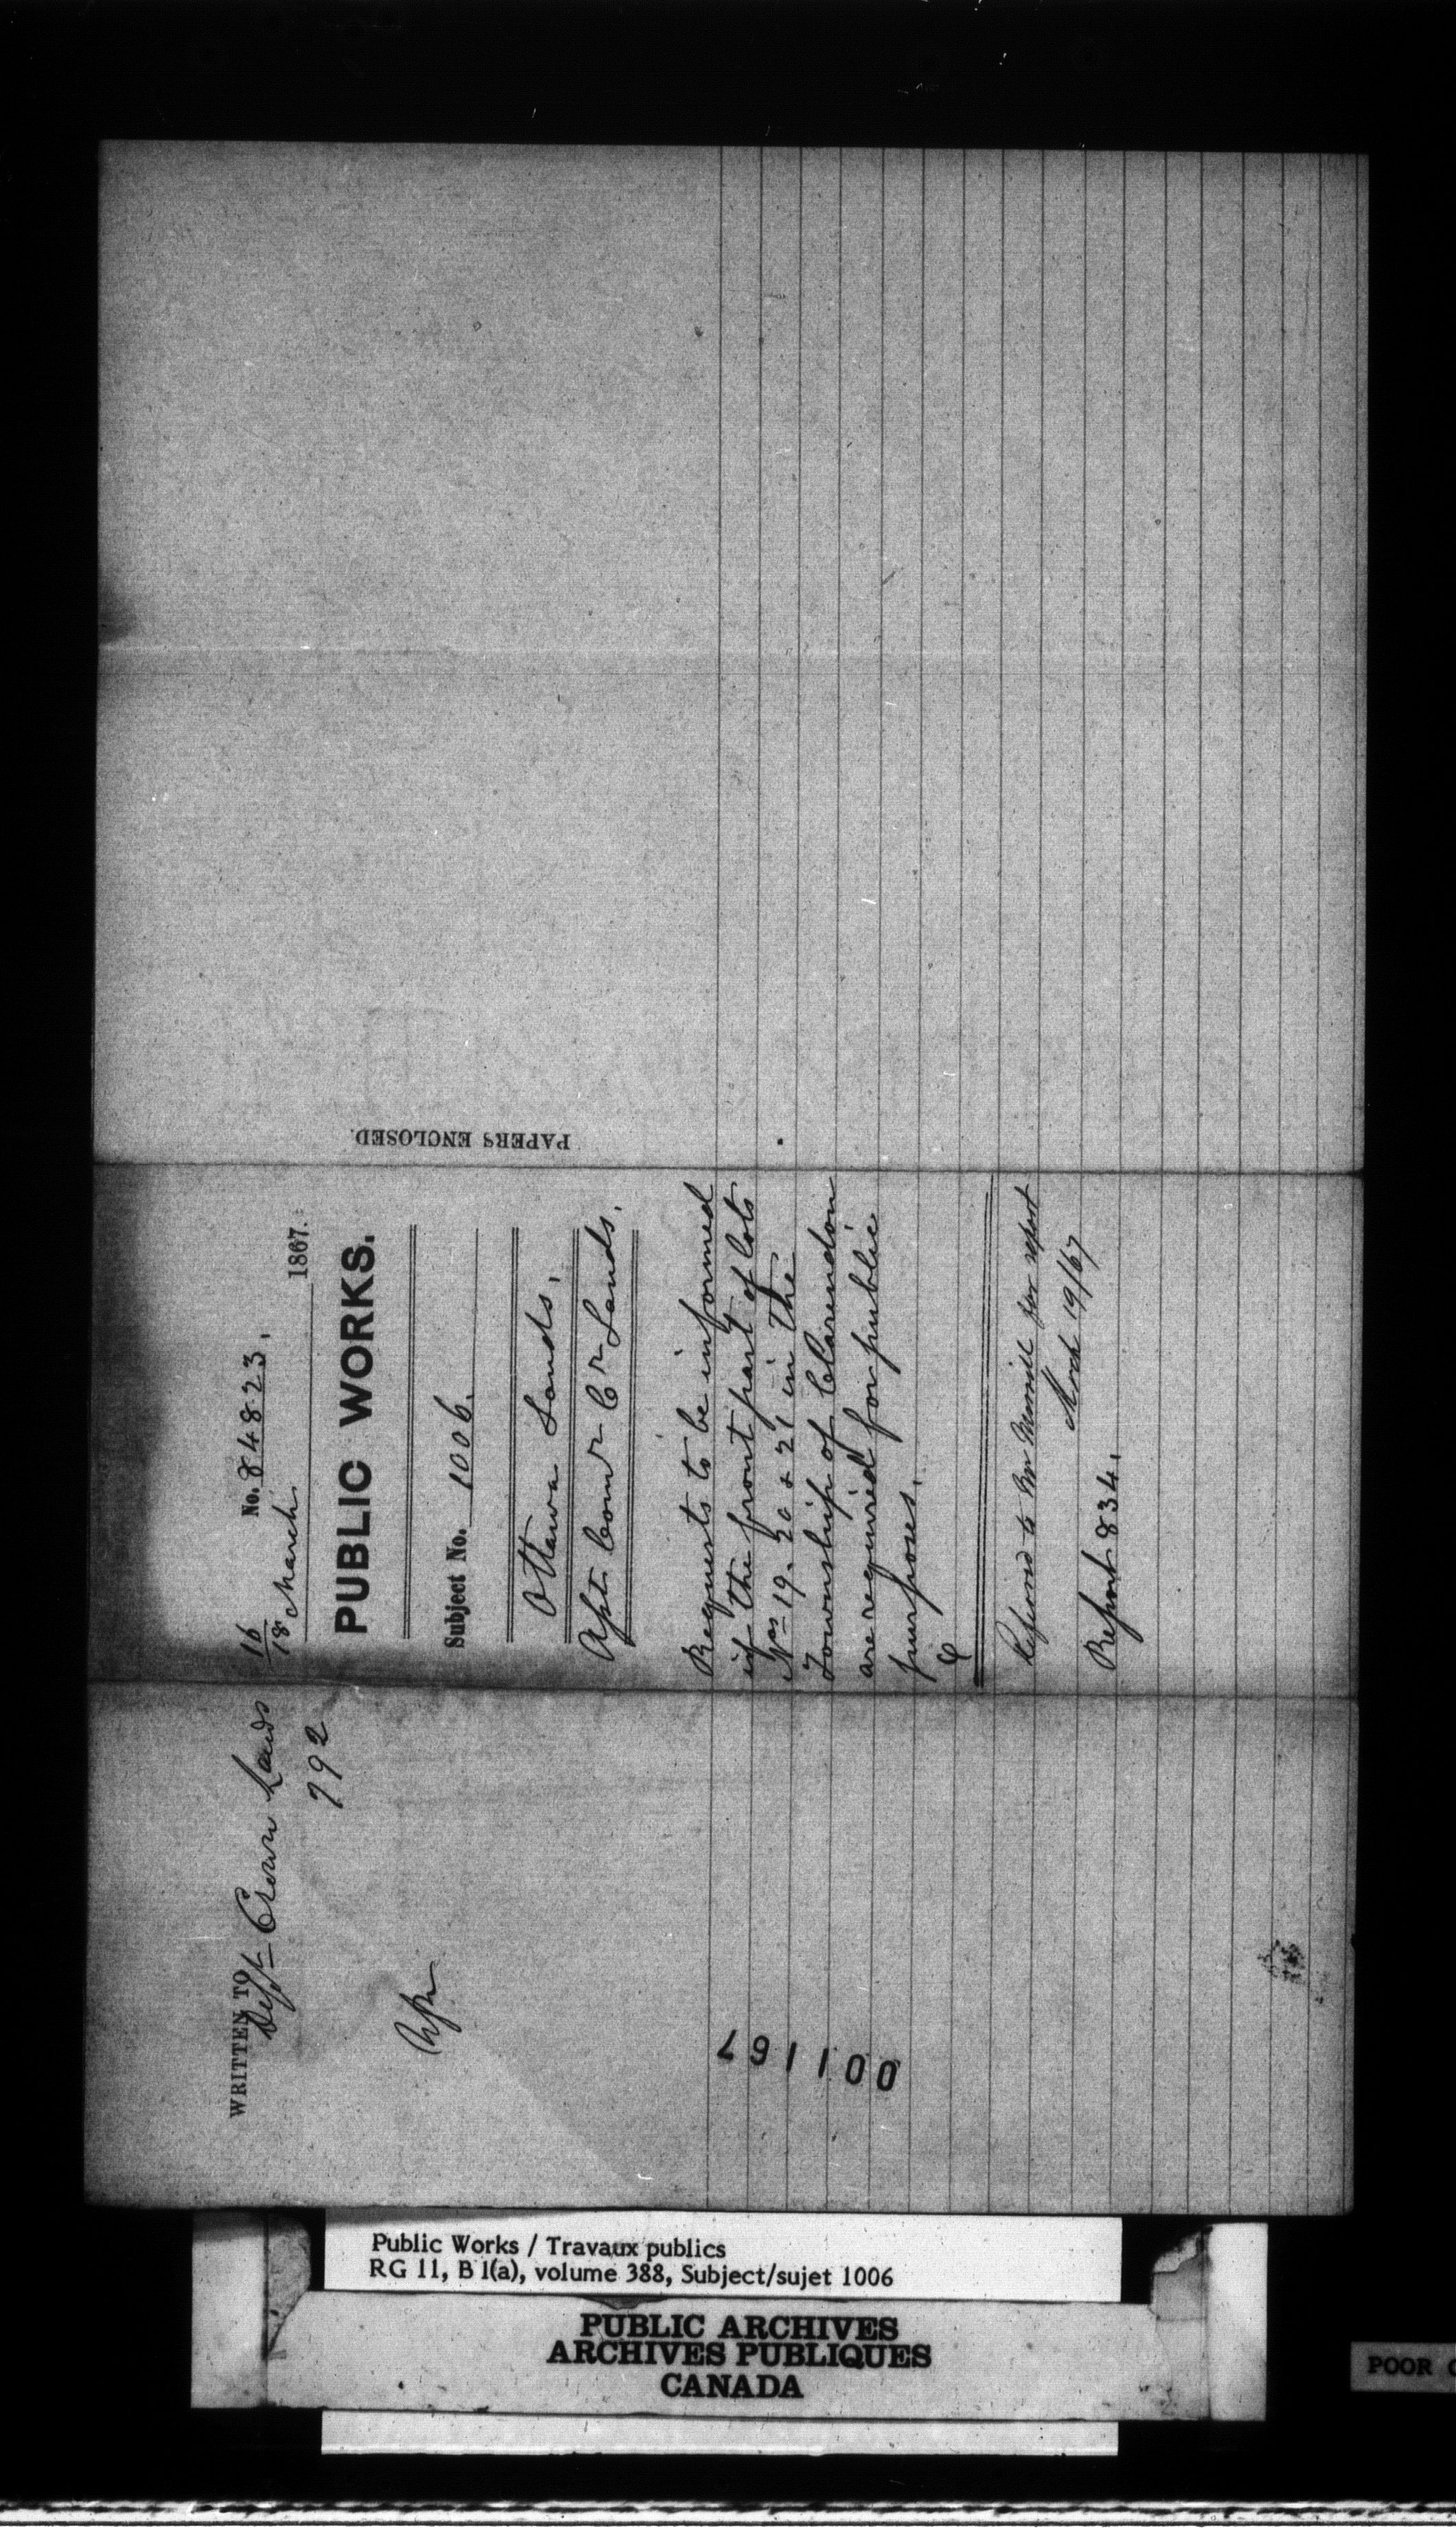 WRITTEN TO
Dept Crown Lands
792
No. 84823.
16
18 March 1867.
PUBLIC WORKS.
Subject No. 1006.
Ottawa Lands.
Asst. Comr Cr Lands.
Requests to be informed
if the front part of lots
Nos 19. 20 & 21 in the
Township of Clarendon
are required for public
purposes.
Referred to Mr Merrill for report
March 19/67
Report 834.
PAPERS ENCLOSED.
001167
Public Works / Travaux publics
RG 11, B 1(a), volume 388, Subject/sujet 1006
PUBLIC ARCHIVES
ARCHIVES PUBLIQUES
CANADA
POOR